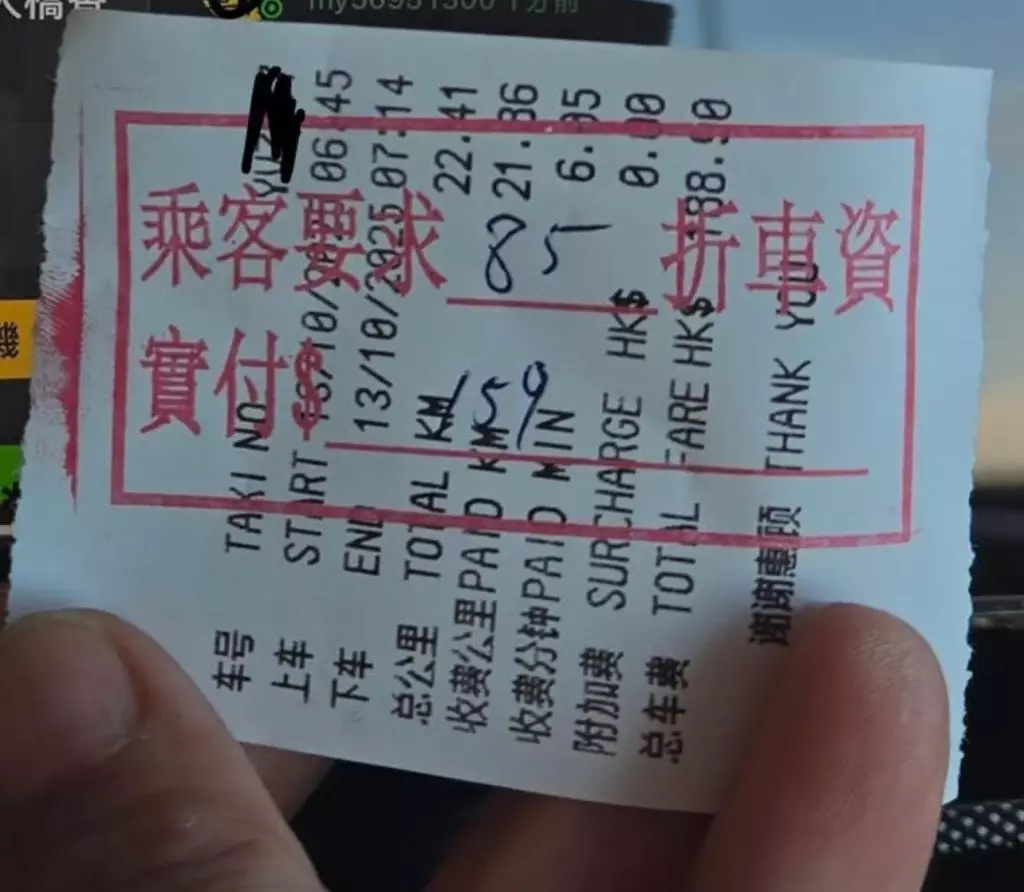 my56951300 1分前
機
乘客要求 85 折車資
實付$ 159
车号 TAXI NO
上车 START 13/10/2025 06:45
下车 END 13/10/2025 07:14
总公里 TOTAL KM 22.41
收费公里PAID KM 21.86
收费分钟PAID MIN
附加费 SURCHARGE HK$ 0.00
总车费 TOTAL FARE HK$ 188.90
谢谢惠顾 THANK YOU